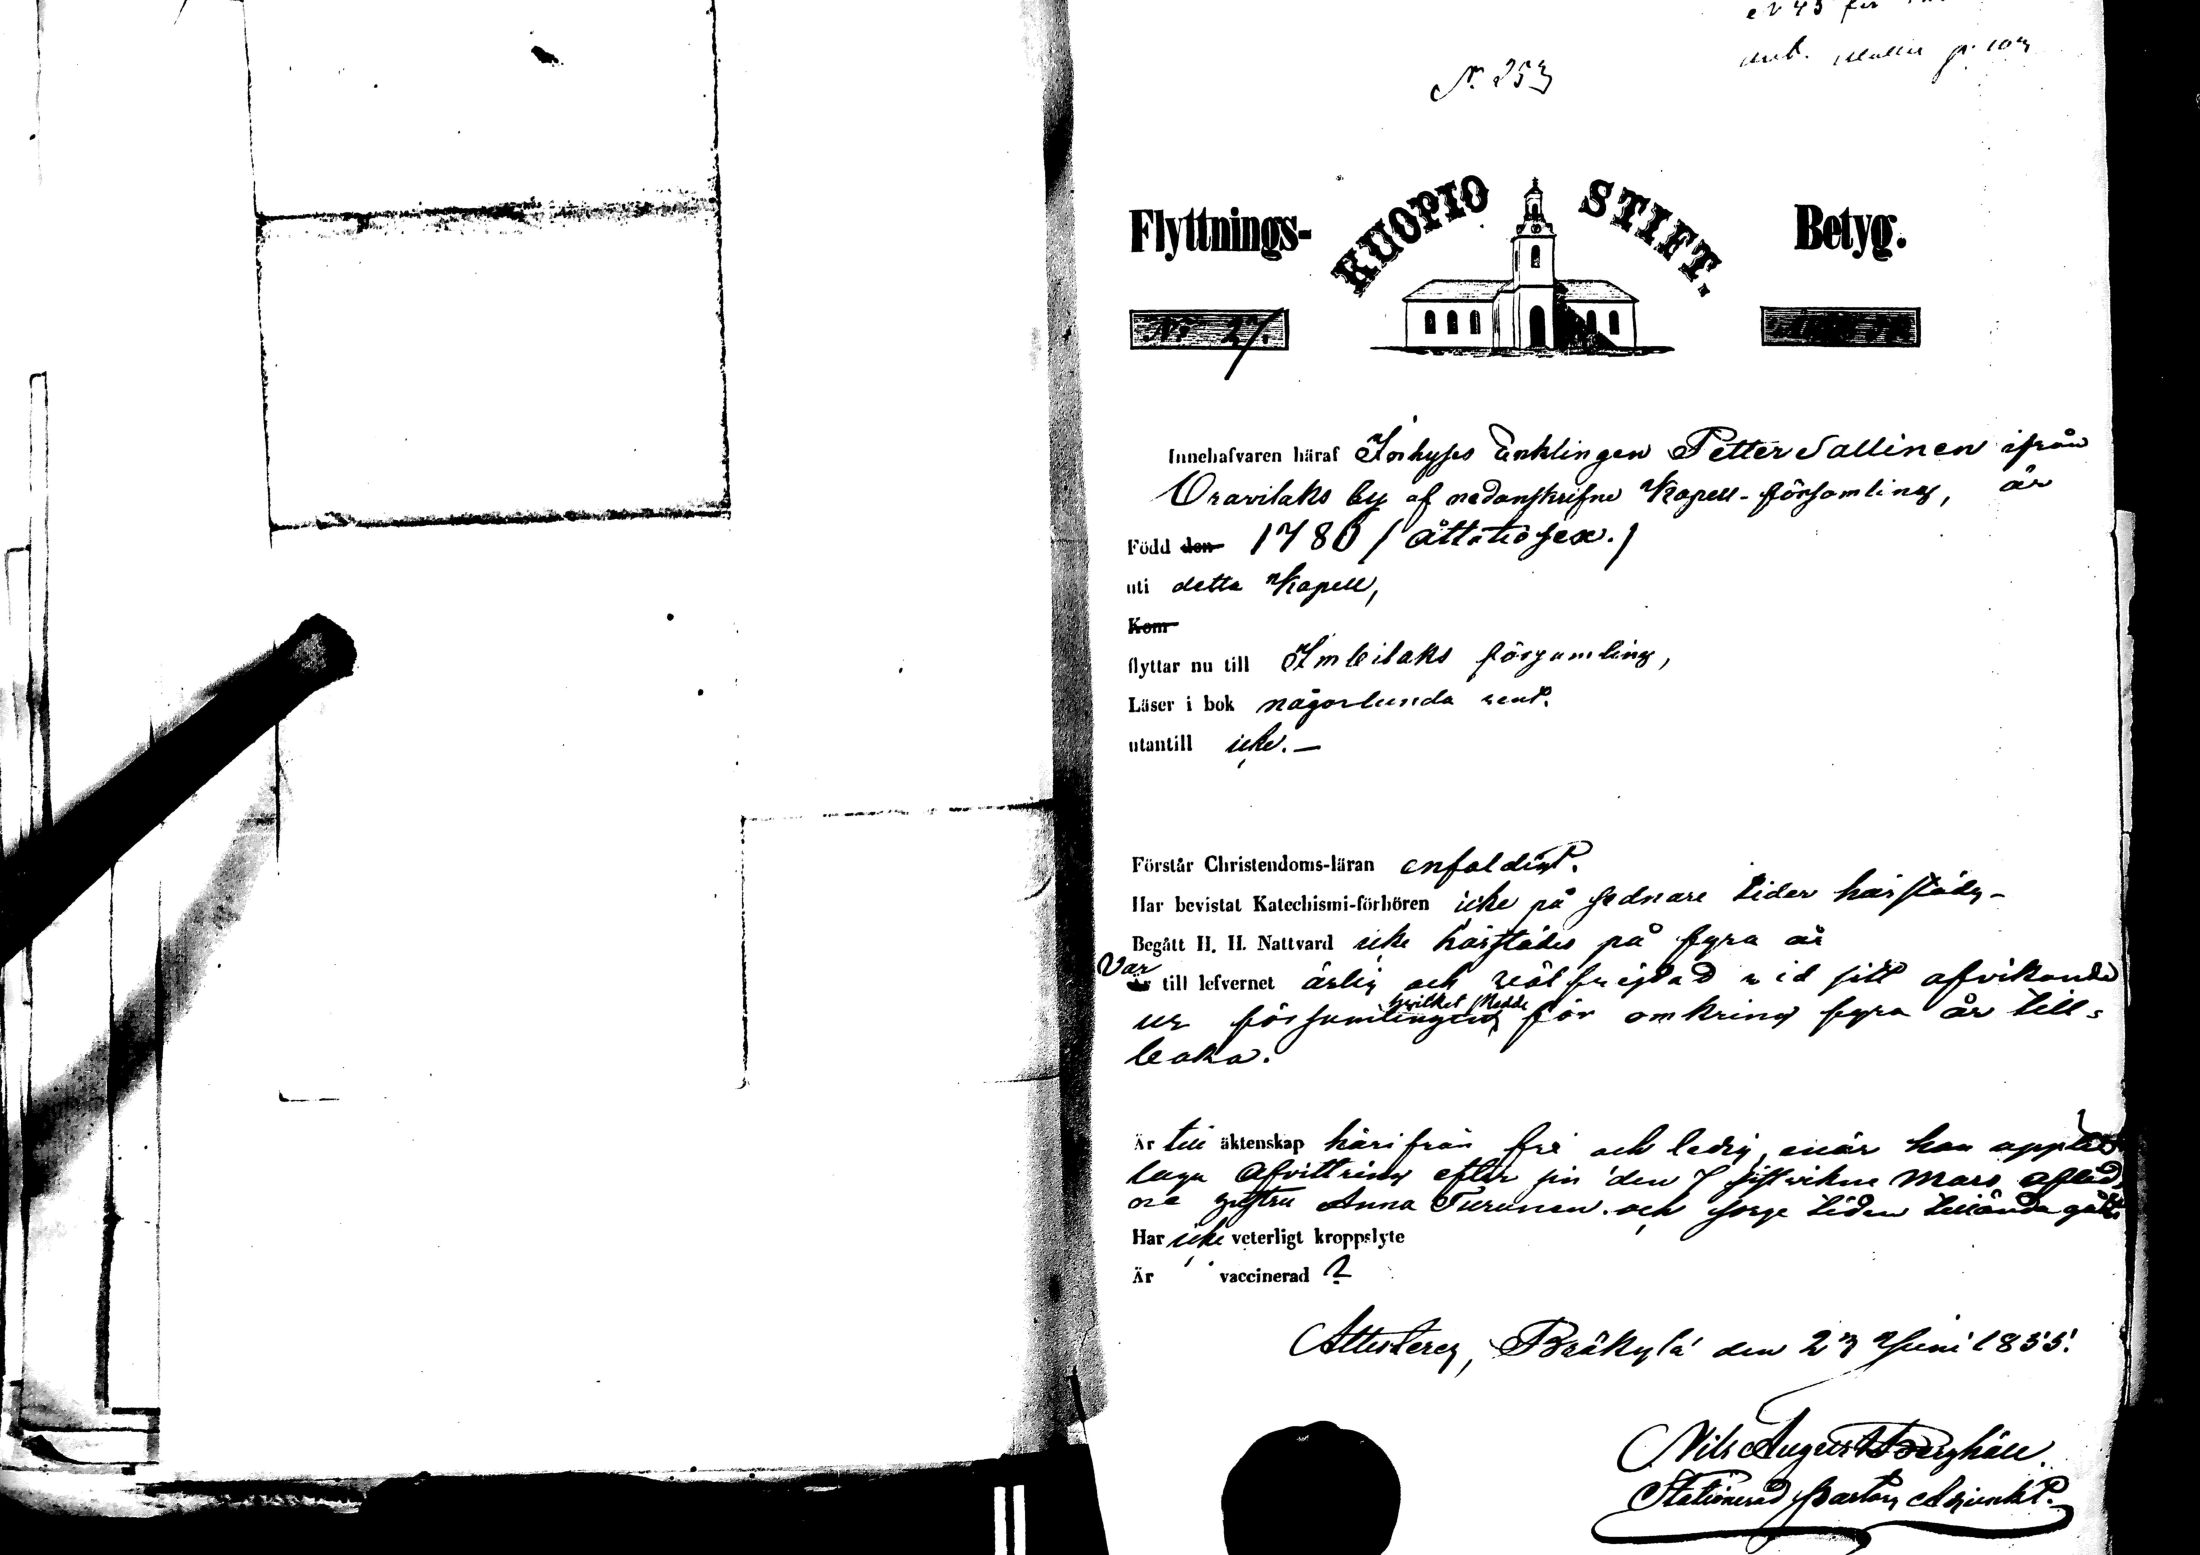 N. 253
Flyttnings- KUOPIO STIFT. Betyg.
N:o 27.
Innehafvaren häraf Inhyses Enklingen Petter Sallinen ifrån
Oravilaks by af nedanskrifne Kapell-församling, är
Född den 1786 / åttatiosex. /
uti detta Kapell,
Kom
flyttar nu till Imbilaks församling,
Läser i bok någorlunda rent.
utantill icke. —
Förstår Christendoms-läran enfaldigt.
Har bevistat Katechismi-förhören icke på sednare tider härstädes
Begått H. H. Nattvard icke härstädes på fyra år
Var
Är till lefvernet ärlig och välfrejdad vid sitt afvikande
hvilket skedde
ur församlingen för omkring fyra år till-
baka.
Är till äktenskap härifrån fri och ledig, enär han
laga Afvittring efter sin den 7 sistvikne Mars aflid-
ne hustru Anna Turunen och sorge tiden tilländagått
Har icke veterligt kroppslyte
Är vaccinerad ?
Attesterar, Bräkylä den 23 Juni 1855.
Nils August Berghäll.
Stationerad Pastors Adjunkt.